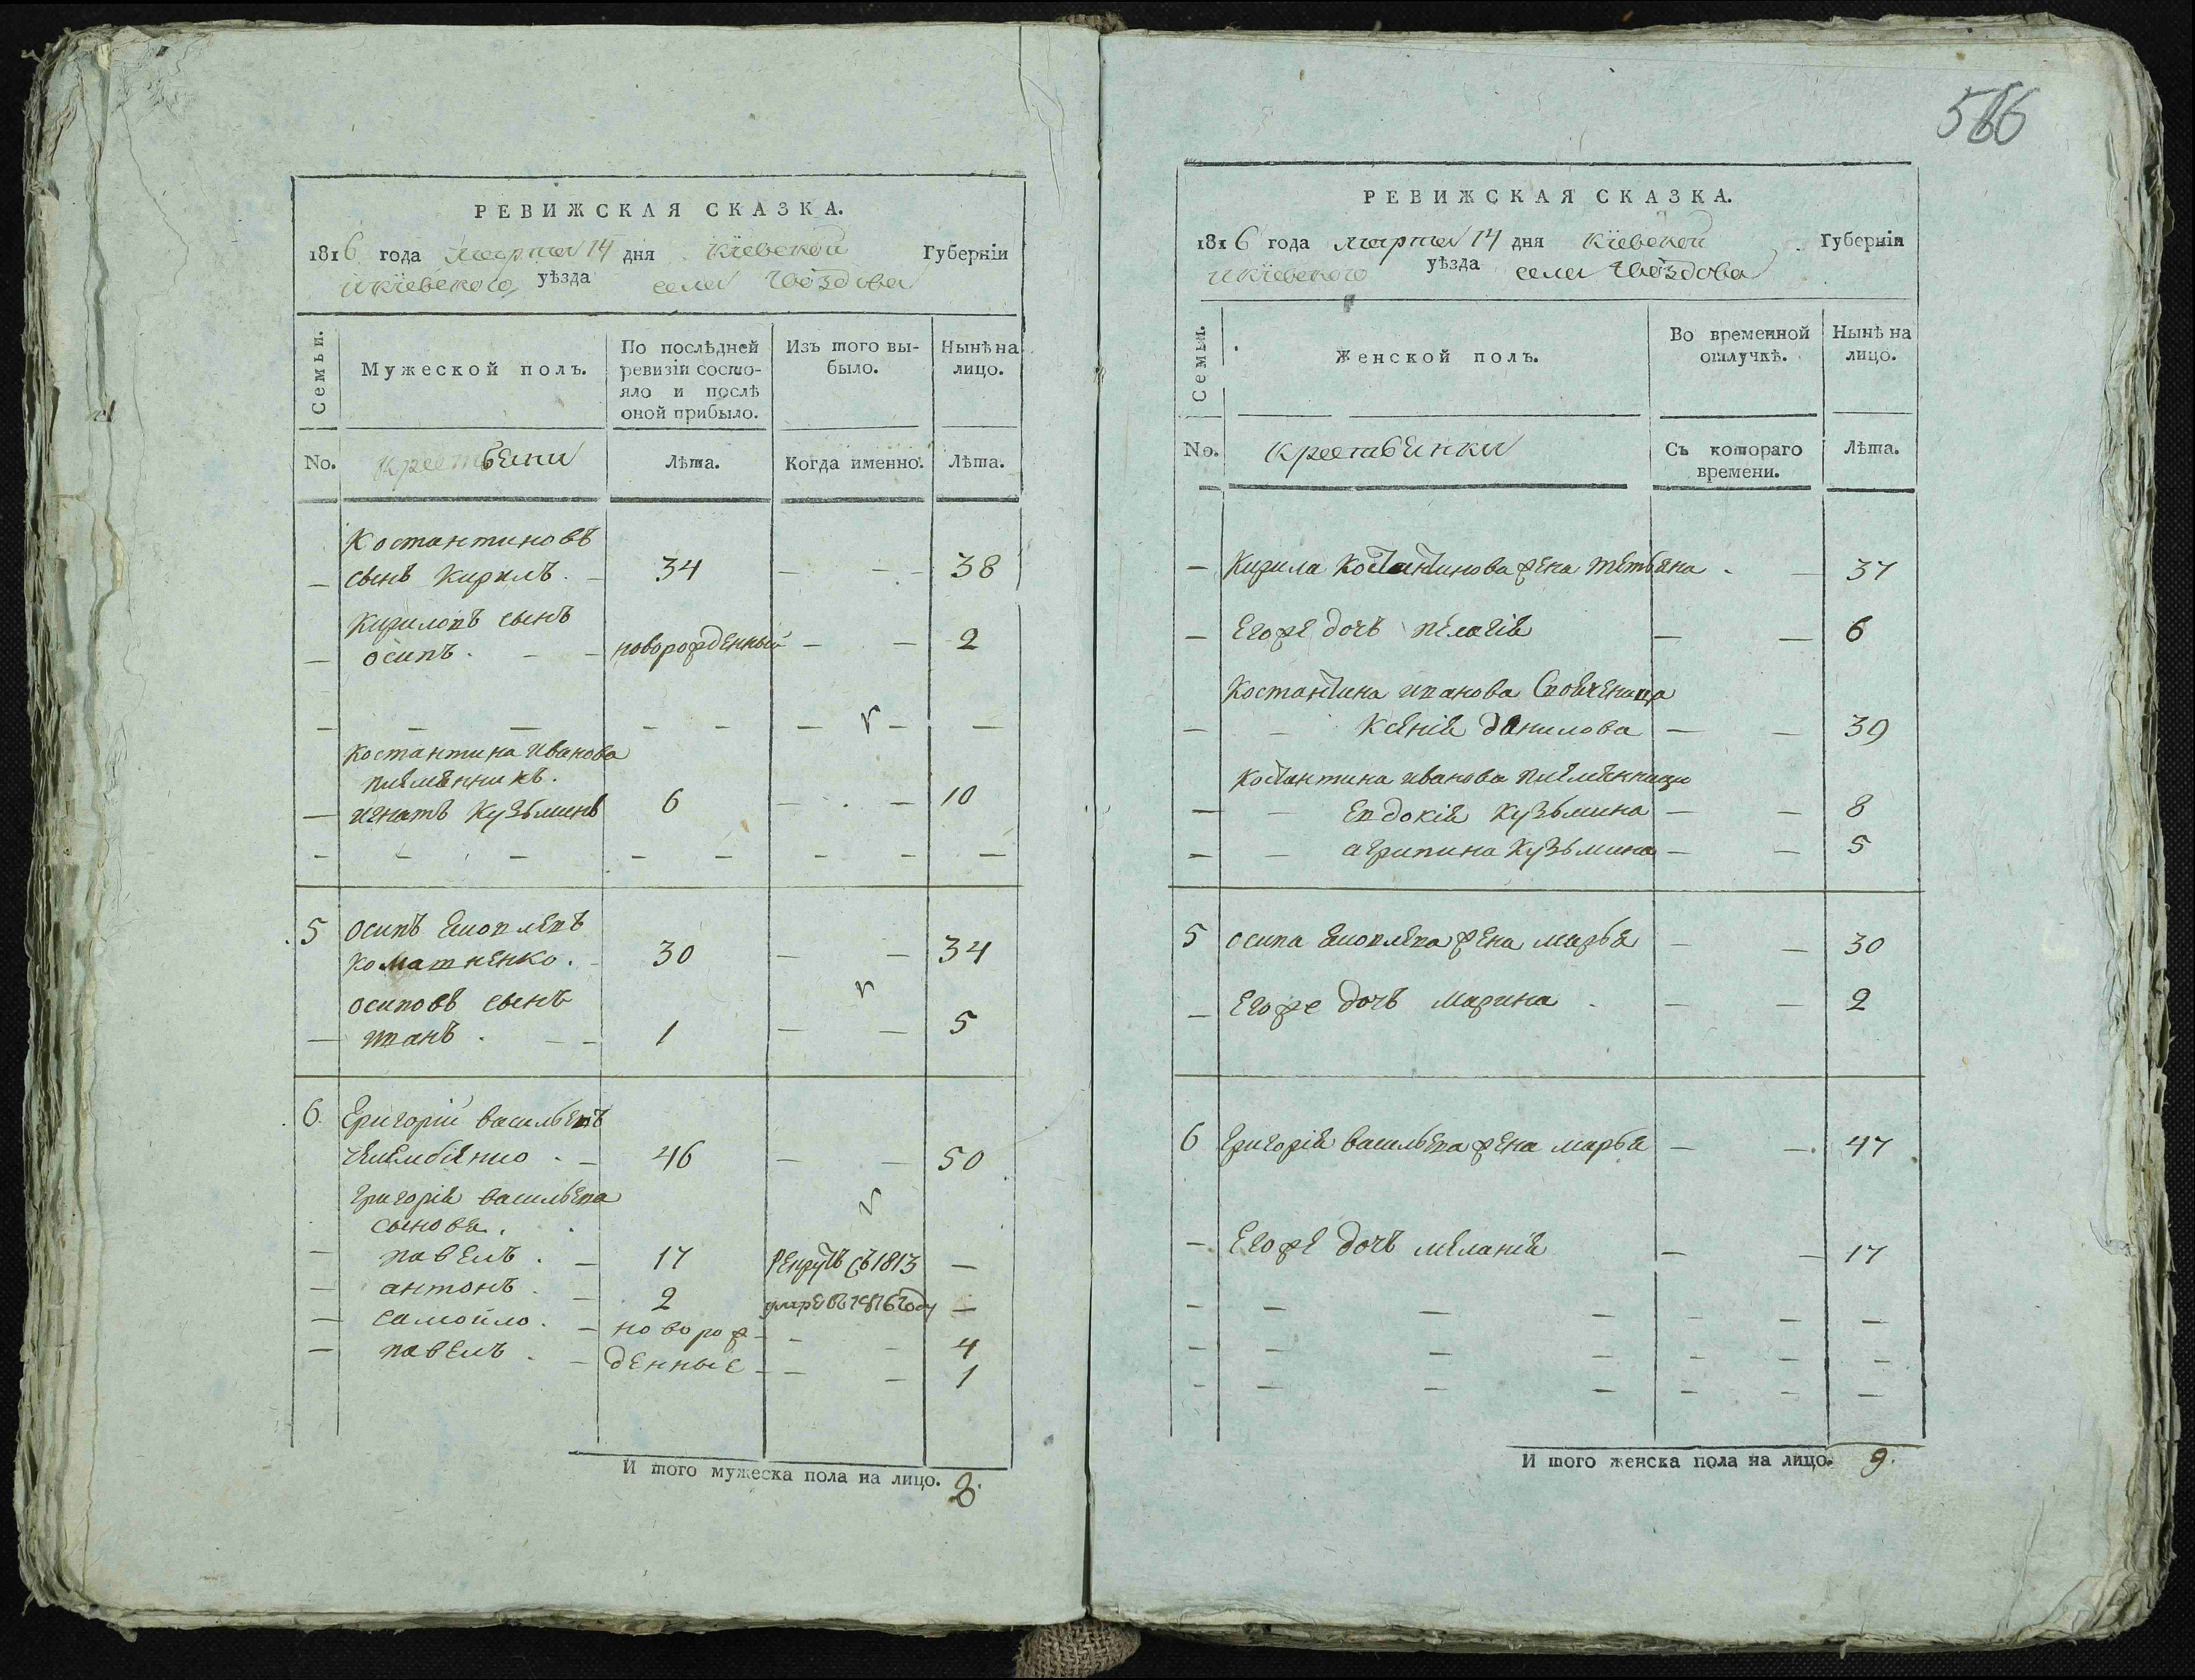 РЕВИЖСКАЯ СКАЗКА.
1816 года марта 14 дня Кіевской Губерніи
икіевского уѣзда села Гвоздова
Семьи.
Мужеской полъ.
По послѣдней ревизіи состо-
яло и послѣ
оной прибыло.
Изъ того вы-
было.
Нынѣ на
лицо.
No.
Лѣта.
Когда именно.
Лѣта.
Костантиновъ
— сынъ Кирилъ. — 34 — — 38
Кириловъ сынъ
— осипъ. — — новорожденный — — 2
Костантина Иванова
племѣнникъ.
— игнатъ Кузьминъ 6 — — 10
5 осипъ
30 — — 34
осиповъ сынъ
— 1 — — 5
6 Григорій васильевъ
46 — — 50
Григорія васильева
сыновя.
— павелъ. — 17 рекрутъ съ 1813 —
— антонъ. — 2 умре въ 1816 году —
— самойло. — новорож- — — 4
— павелъ. — денные — — 1
И того мужеска пола на лицо.
566
РЕВИЖСКАЯ СКАЗКА.
1816 года марта 14 дня Кіевской Губерніи
икіевского уѣзда села Гвоздова
Семьи.
Женской полъ.
Во временной
отлучкѣ.
Нынѣ на
лицо.
No.
крестьянки
Съ котораго
времени.
Лѣта.
— Кирила Костантинова жена татьяна — 37
— Егоже дочъ пелагія — — 6
Костантина иванова
— — Ксенія данилова — — 39
Костантина иванова племѣнници
— — Евдокія Кузьмина — — 8
— — агрипина Кузьмина — — 5
5 осипа жена марья — — 30
— Егоже дочъ марина — — 2
6 Григорія васильева жена марья — — 47
— Егоже дочъ меланія — — 17
И того женска пола на лицо. 9.